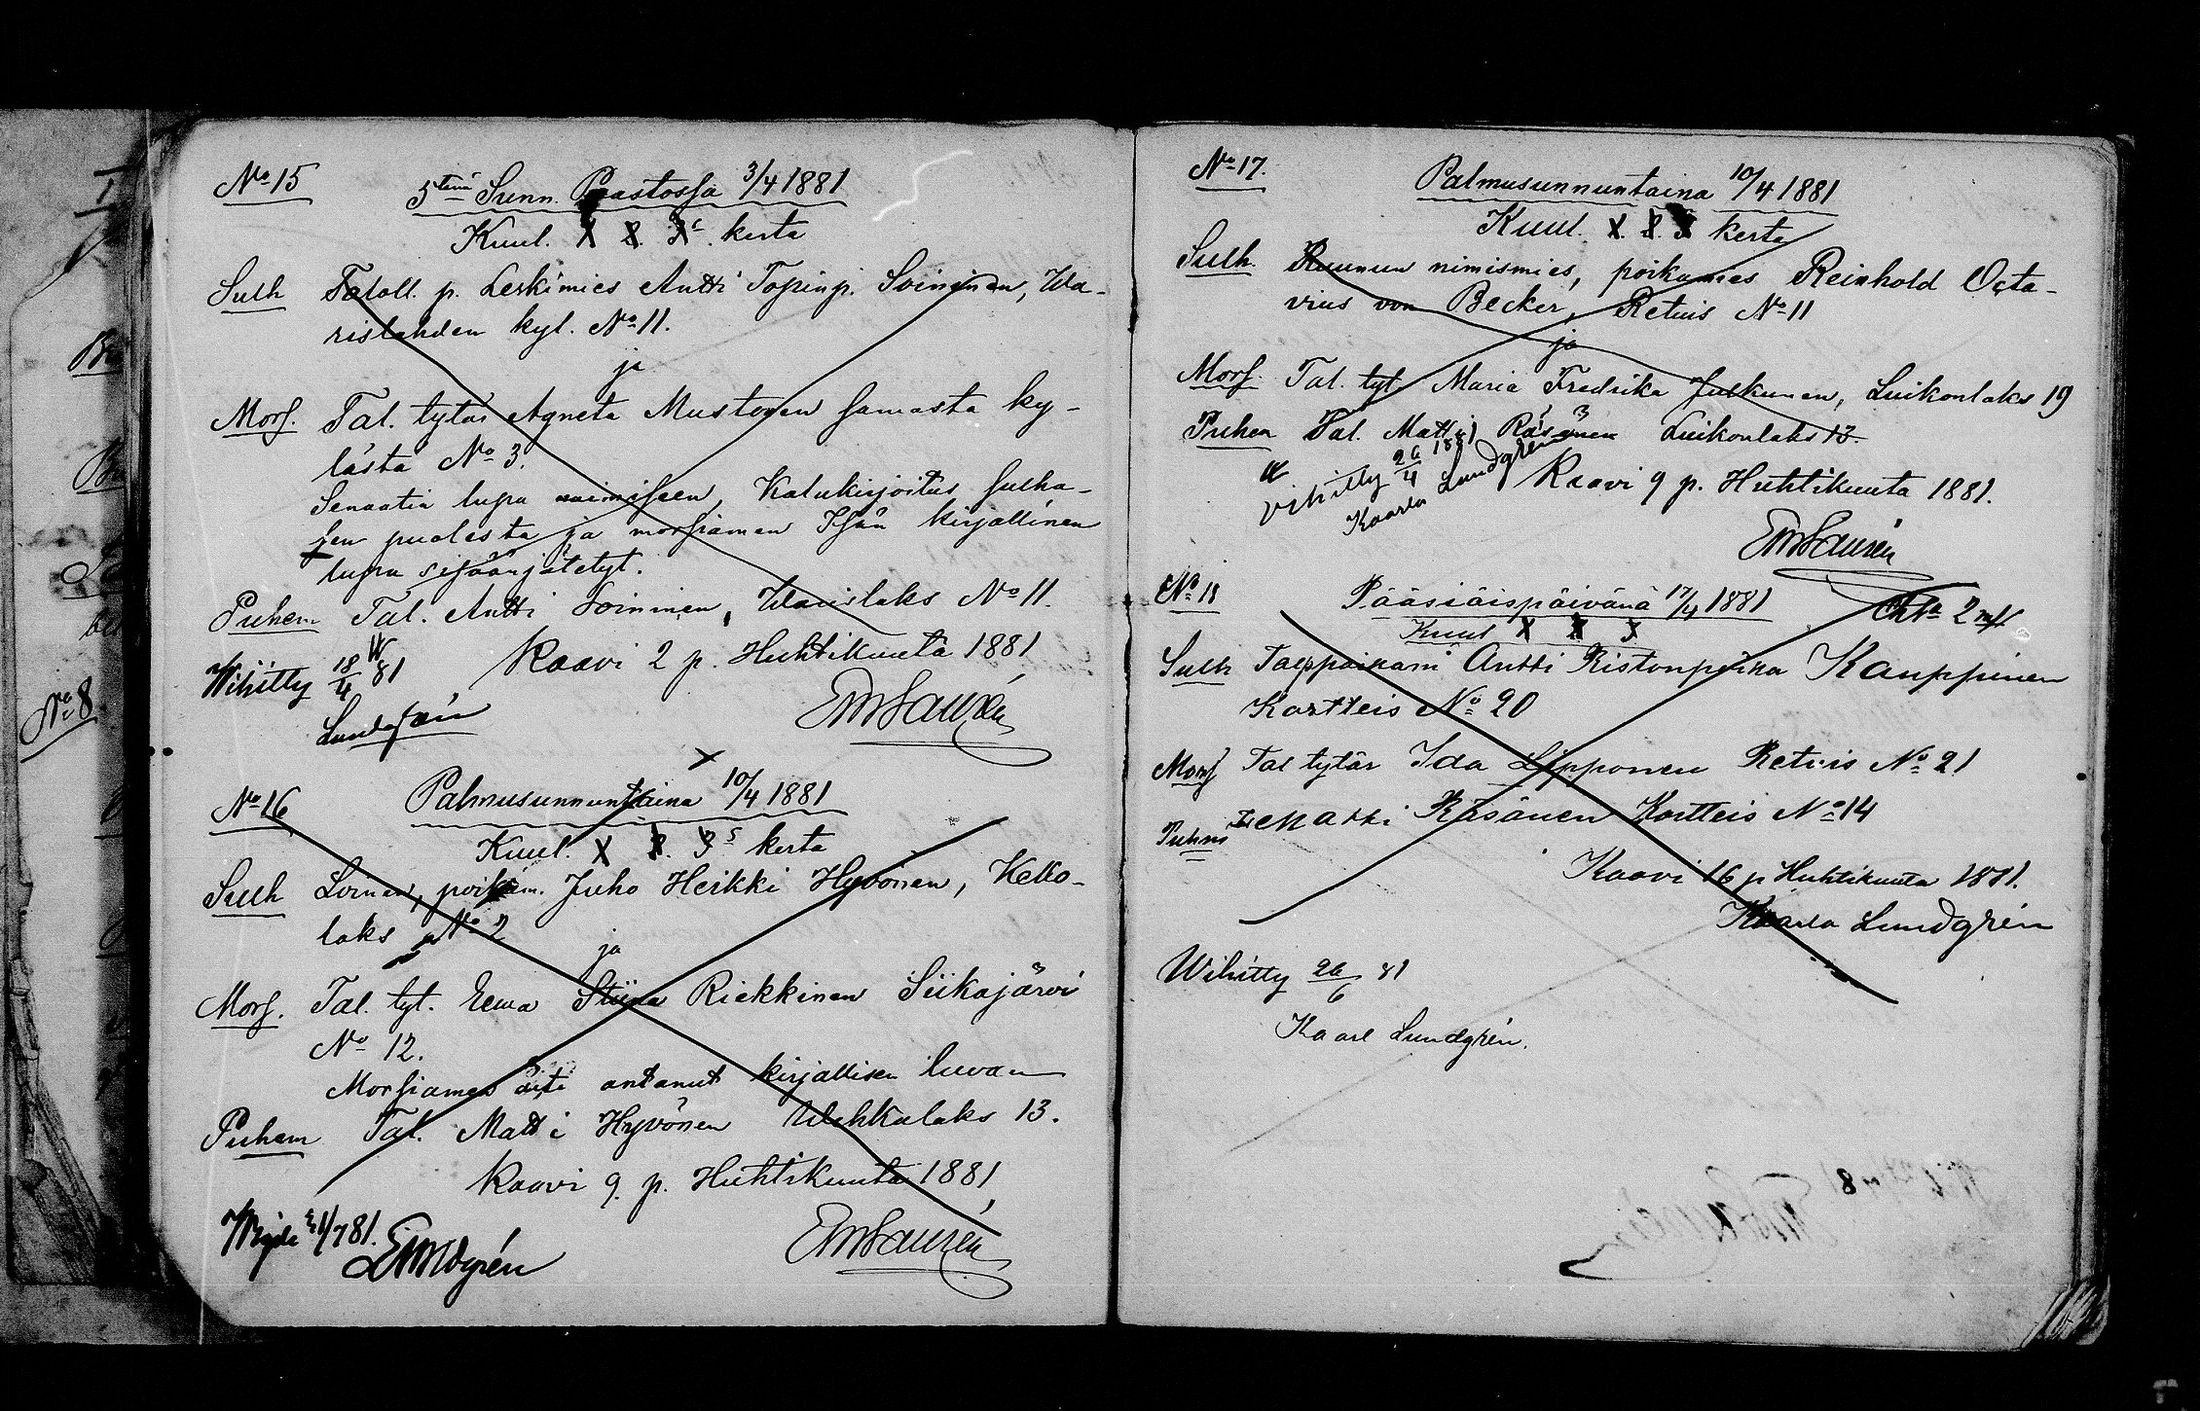 No 15
5tenä Sunn. Paastossa 3/4 1881
Kuul. X 2. 3 kerta
Sulh Taloll. p. Leskimies Antti Topinp. Soininen, Wa-
rislahden kyl. No 11.
ja
Mors. Tal. tytär Agneta Mustonen samasta ky-
lästä No 3.
Senaatin lupa naimiseen, Kalukirjoitus sulha-
sen puolesta ja morsiamen Isän kirjallinen
lupa sisäänjätetyt.
Puhem Tal. Antti Soininen, Warislaks No 11.
Kaavi 2 p. Huhtikuuta 1881
Wihitty 18/4 81
EWLaurén
No 16
Palmusunnuntaina 10/4 1881
Kuul. X 2. 3 kerta
Sulh Loinen, poikam. Juho Heikki Hyvönen, Kelko-
laks No 2
ja
Mors. Tal. tyt. Eewa Stiina Riekkinen Siikajärvi
No 12.
Morsiamen äiti antanut kirjallisen luvan
Puhem Tal. Matti Hyvönen Wehkalaks 13.
Kaavi 9. p. Huhtikuuta 1881
EWLaurén
Lundgrén
No 17.
Palmusunnuntaina 10/4 1881
Kuul. X. 2. 3 kerta
Sulh. Ruunun nimismies, poikamies Reinhold Octa-
vius von Becker, Retuis No 11
ja
Mors. Tal. tyt. Maria Fredrika Julkunen, Luikonlaks 19
Puhem Tal. Matti Räsänen Luikonlaks 13.
Vihitty 26/4 1881
Kaarlo Lundgrén
Kaavi 9 p. Huhtikuuta 1881.
EWLaurén
No 18
Pääsiäispäivänä 17/4 1881
2 mk
Kuul X X 3
Sulh Tal poikam Antti Ristonpoika Kauppinen
Kortteis No 20
Mors Tal tytär Ida Lipponen Retuis No 21
Puhms Matti Räsänen Kortteis No 14
Kaavi 16 p Huhtikuuta 1881.
Kaarlo Lundgrén
Wihitty 26/6 81
Kaarl Lundgrén.
No 8